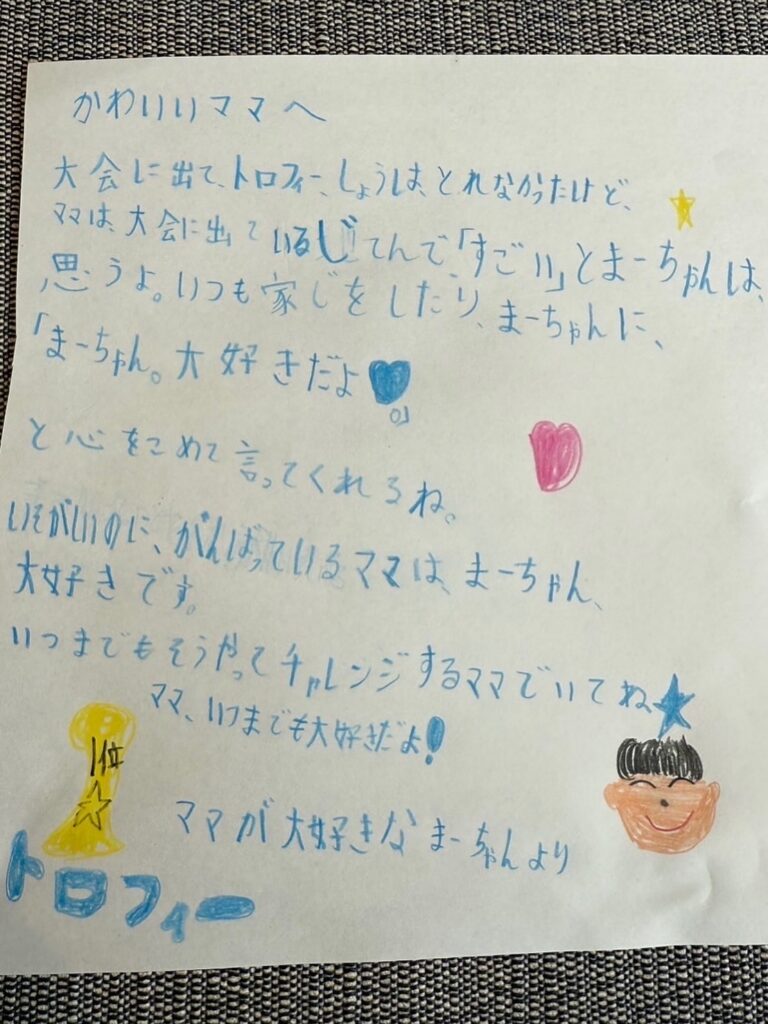 かわいいママへ
大会に出て、トロフィー、しょうは、とれなかったけど、
ママは、大会に出ているじてんで「すごい」とまーちゃんは、
思うよ。いつも家じをしたり、まーちゃんに、
「まーちゃん。大好きだよ
。」
と心をこめて言ってくれるね。
いそがいのに、がんばっているママは、まーちゃん、
大好きです。
いつまでもそうやってチャレンジするママでいてね
ママ、いつまでも大好きだよ!
1位
ママが大好きなまーちゃんより
トロフィー